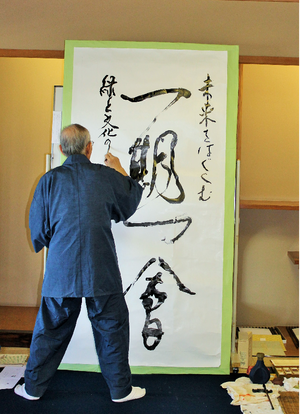 未来をはぐくむ
一期一會
緑と文化の